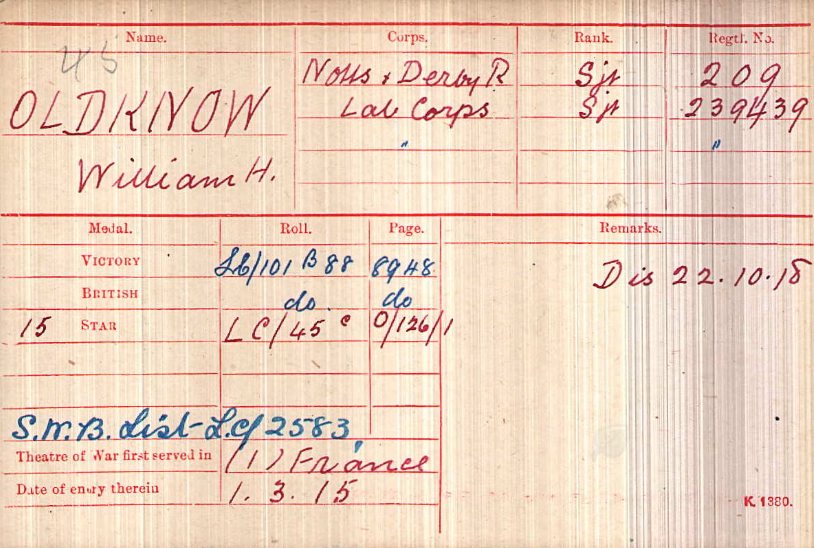 Name. Corps. Rank. Regtl. No.
45
Notts & Derby R Sjt 209
OLDKNOW Lab Corps Sjt 239439
" "
William H.
Medal. Roll. Page. Remarks.
VICTORY LC/101 B 88 8948 Dis 22.10.18
BRITISH do. do
15 STAR LC/45 c O/126/1
S.W.B. List-LC/2583
Theatre of War first served in (1) France
Date of entry therein 1. 3. 15
K. 1380.